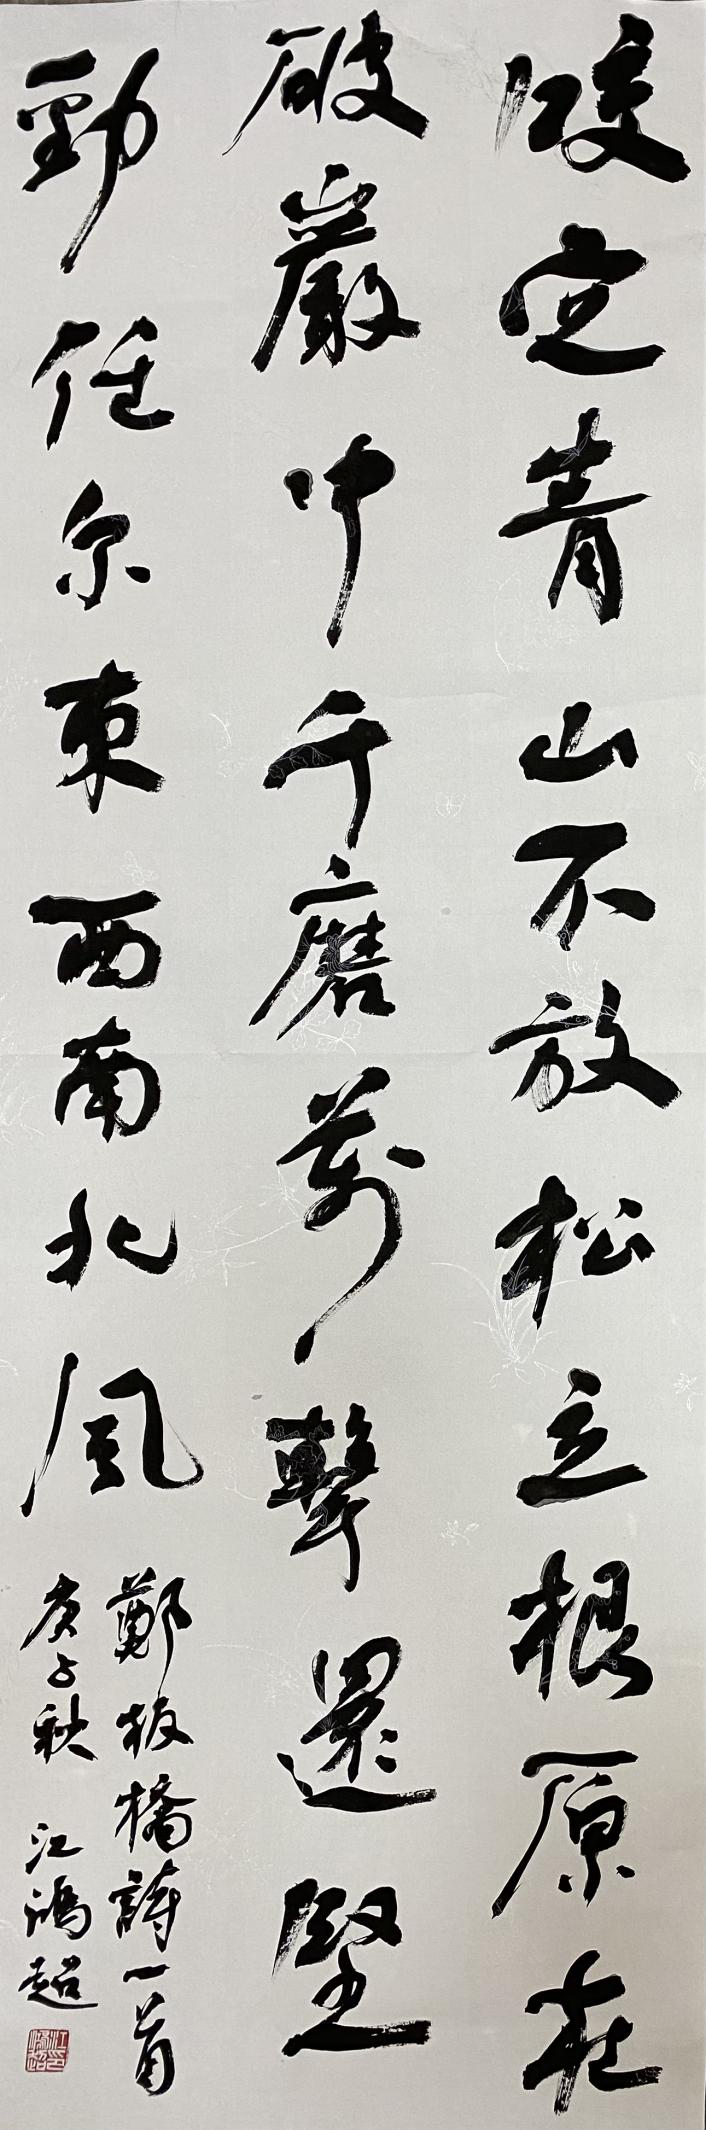 咬定青山不放松立根原在
破巖中千磨萬擊還堅
勁任尔東西南北風
鄭板橋詩一首
庚子秋 江鴻超
江鴻超印